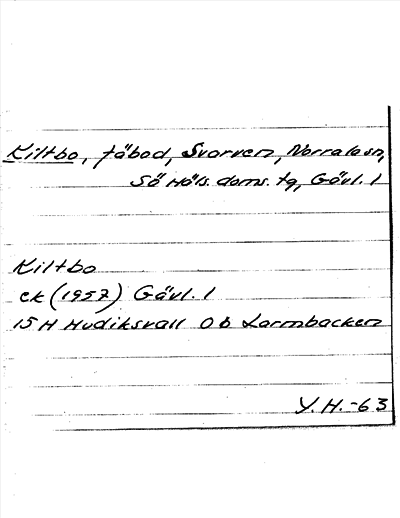 Kiltbo, fäbod, Svorven, Norrala sn,
Sö Häls. doms. tg, Gävl. l
Kiltbo
ek (1957) Gävl. l
15 H Hudiksvall 0 b Larmbacken
Y. H. -63